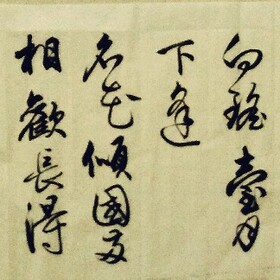 向瑤臺月
下逢
名花傾國兩
相歡長得